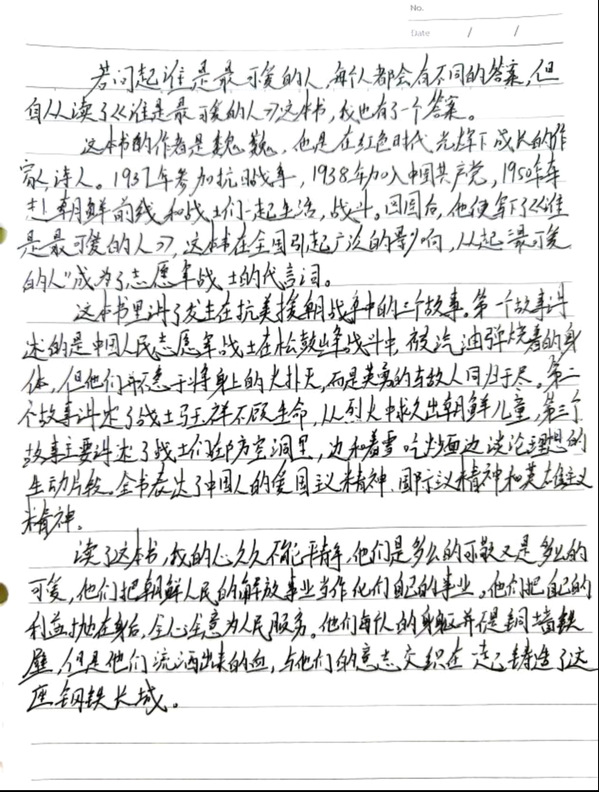 No.
Date / /
若问起谁是最可爱的人,每个人都会有不同的答案,但
自从读了《谁是最可爱的人》这本书,我也有了一个答案。
这本书的作者是魏巍,他是在红色时代光辉下成长的作
家、诗人。1937年参加抗日战争,1938年加入中国共产党,1950年奔
赴朝鲜前线和战士们一起生活,战斗。回国后,他便写下了《谁
是最可爱的人》,这本书在全国引起广泛的影响,从起“最可爱
的人”成为了志愿军战士的代言词。
这本书里讲了发生在抗美援朝战争中的三个故事。第一个故事讲
述的是中国人民志愿军战士在松鼓峰战斗中,被汽油弹烧着的身
体,但他们并不急于将身上的火扑灭,而是英勇的与敌人同归于尽。第二
个故事讲述了战士马玉祥不顾生命,从烈火中救出朝鲜儿童,第三个
故事主要讲述了战士们在防空洞里,边和着雪吃炒面边谈论理想的
生动片段。全书表达了中国人的爱国主义精神、国际主义精神和英雄主义
精神。
读了这本书,我的心久久不能平静,他们是多么的可敬又是多么的
可爱,他们把朝鲜人民的解放事业当作他们自己的事业。他们把自己的
利益抛在身后,全心全意为人民服务。他们每个人的身躯并不是铜墙铁
壁,但是他们流洒出来的血,与他们的意志交织在一起铸造了这
座钢铁长城。